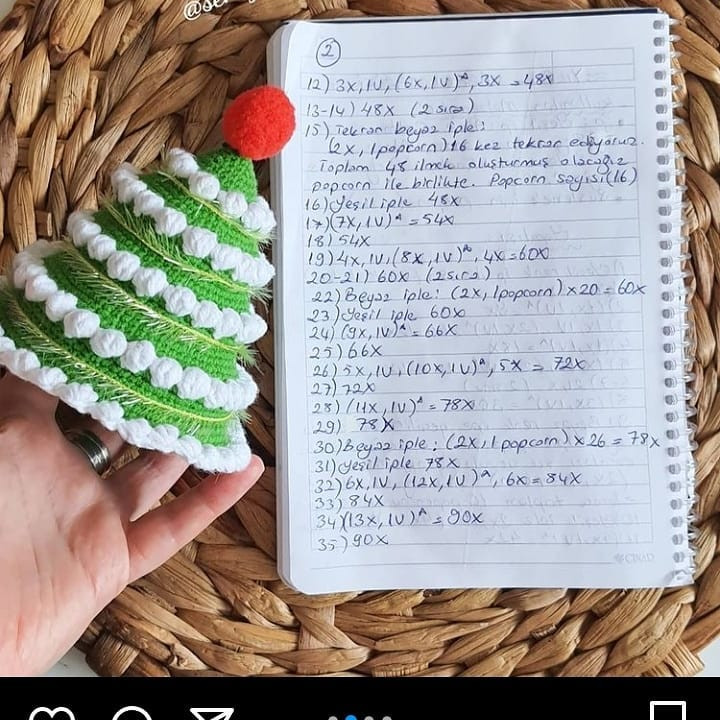 ②
12) 3x, 1V, (6x, 1V)ᴬ, 3x = 48x
13-14) 48x (2 sıra)
15) Tekrar beyaz iple:
(2x, 1 popcorn) 16 kez tekrar ediyoruz.
Toplam 48 ilmek oluşturmuş olacağız
popcorn ile birlikte. Popcorn sayısı (16)
16) Yeşil iple 48x
17) (7x, 1V)ᴬ = 54x
18) 54x
19) 4x, 1V, (8x, 1V)ᴬ, 4x = 60x
20-21) 60x (2 sıra)
22) Beyaz iple: (2x, 1 popcorn) x 20 = 60x
23) Yeşil iple 60x
24) (9x, 1V)ᴬ = 66x
25) 66x
26) 5x, 1V, (10x, 1V)ᴬ, 5x = 72x
27) 72x
28) (11x, 1V)ᴬ = 78x
29) 78x
30) Beyaz iple: (2x, 1 popcorn) x 26 = 78x
31) Yeşil iple 78x
32) 6x, 1V, (12x, 1V)ᴬ, 6x = 84x
33) 84x
34) (13x, 1V)ᴬ = 90x
35) 90x